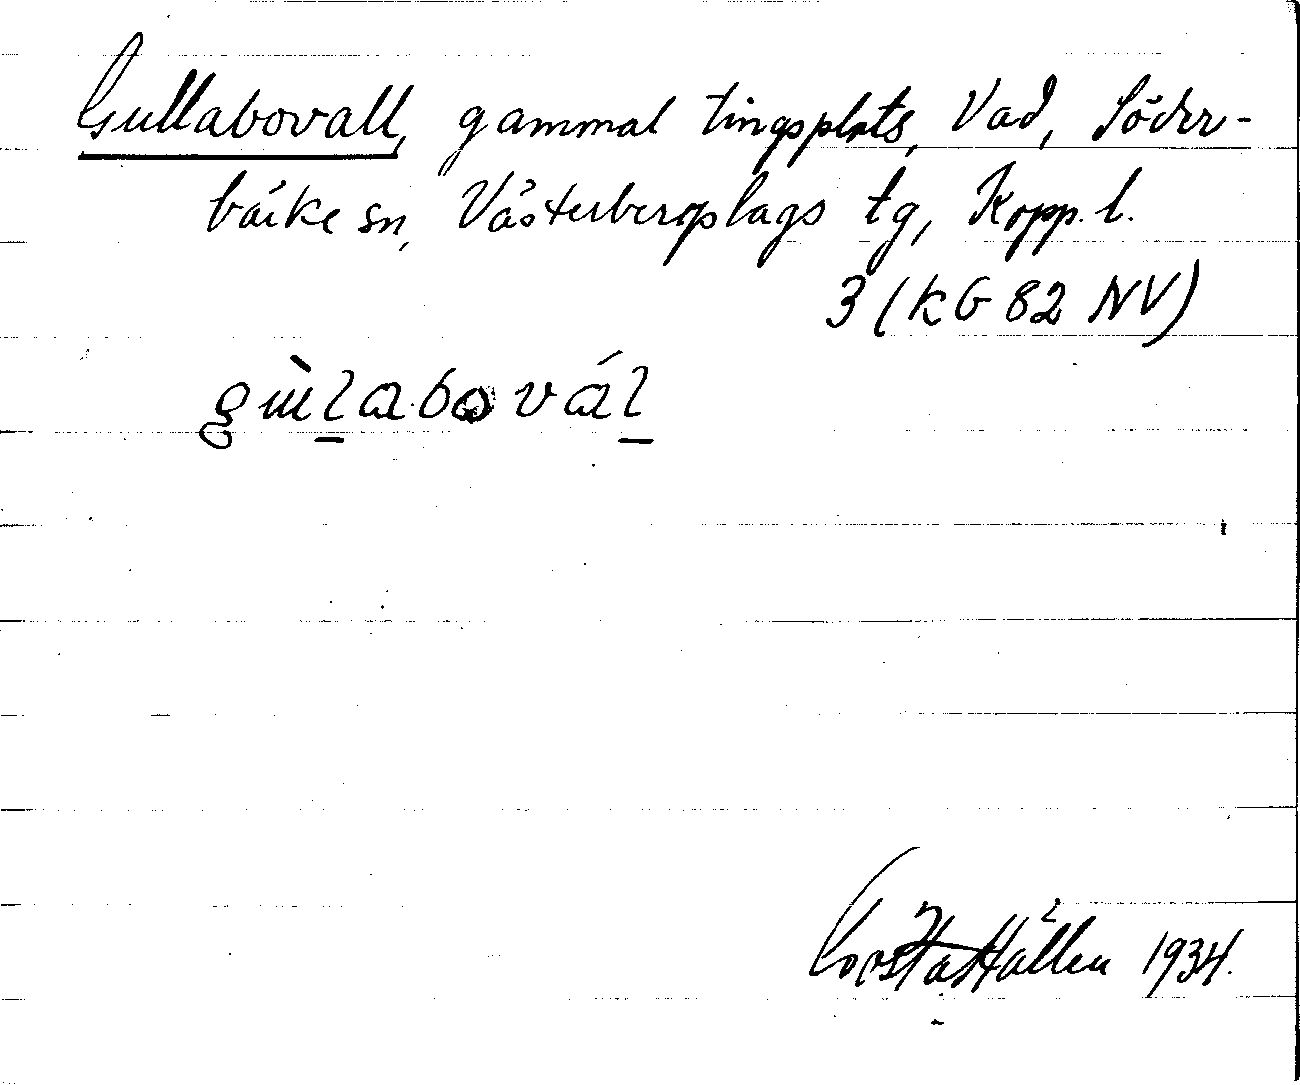 Gullabovall, gammal tingsplats, Vad, Söder-
bärke sn, Västerbergslags tg, Kopp. l.
3 (KG 82 NV)
gùlabovál
Gösta Hållen 1934.